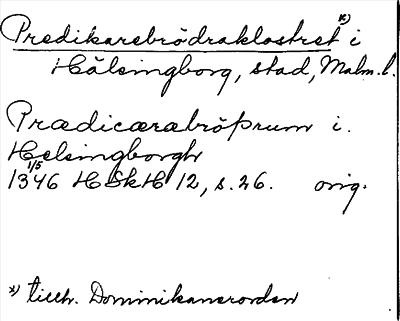 Predikarebrödraklostret *) i
Hälsingborg, stad, Malm. l.
Prædicæræbröþrum i.
Helsingborgh
1346 1/5 HSkH 12, s. 26. orig.
*) tillh. Dominikanerorden